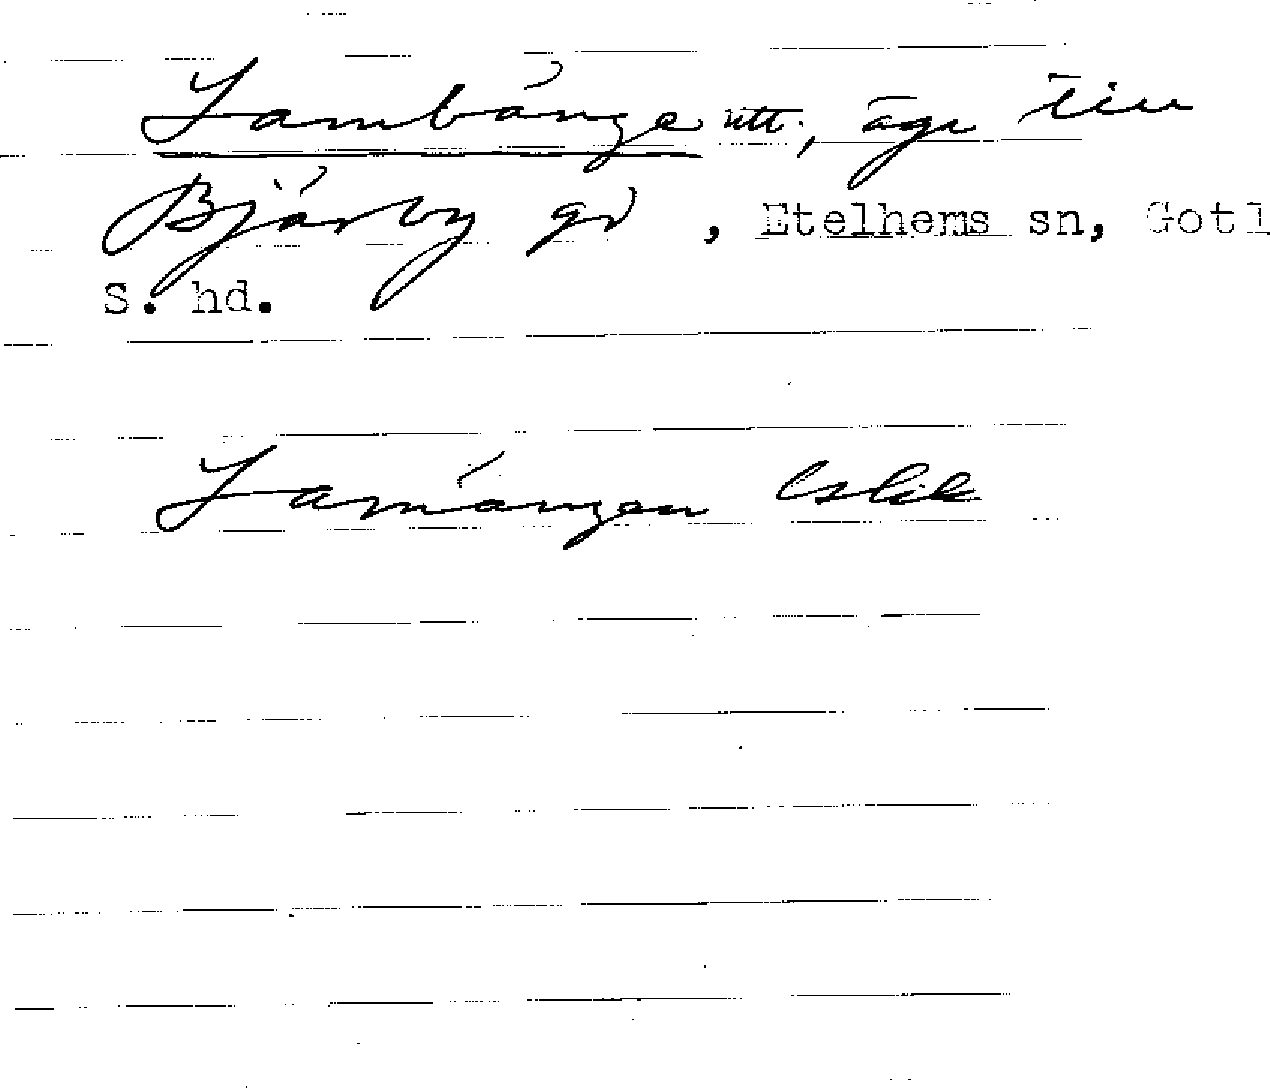 Lambänge utt., äga till
Bjärby gd, Etelhems sn, Gotl
S. hd.
Lamängen Eslik